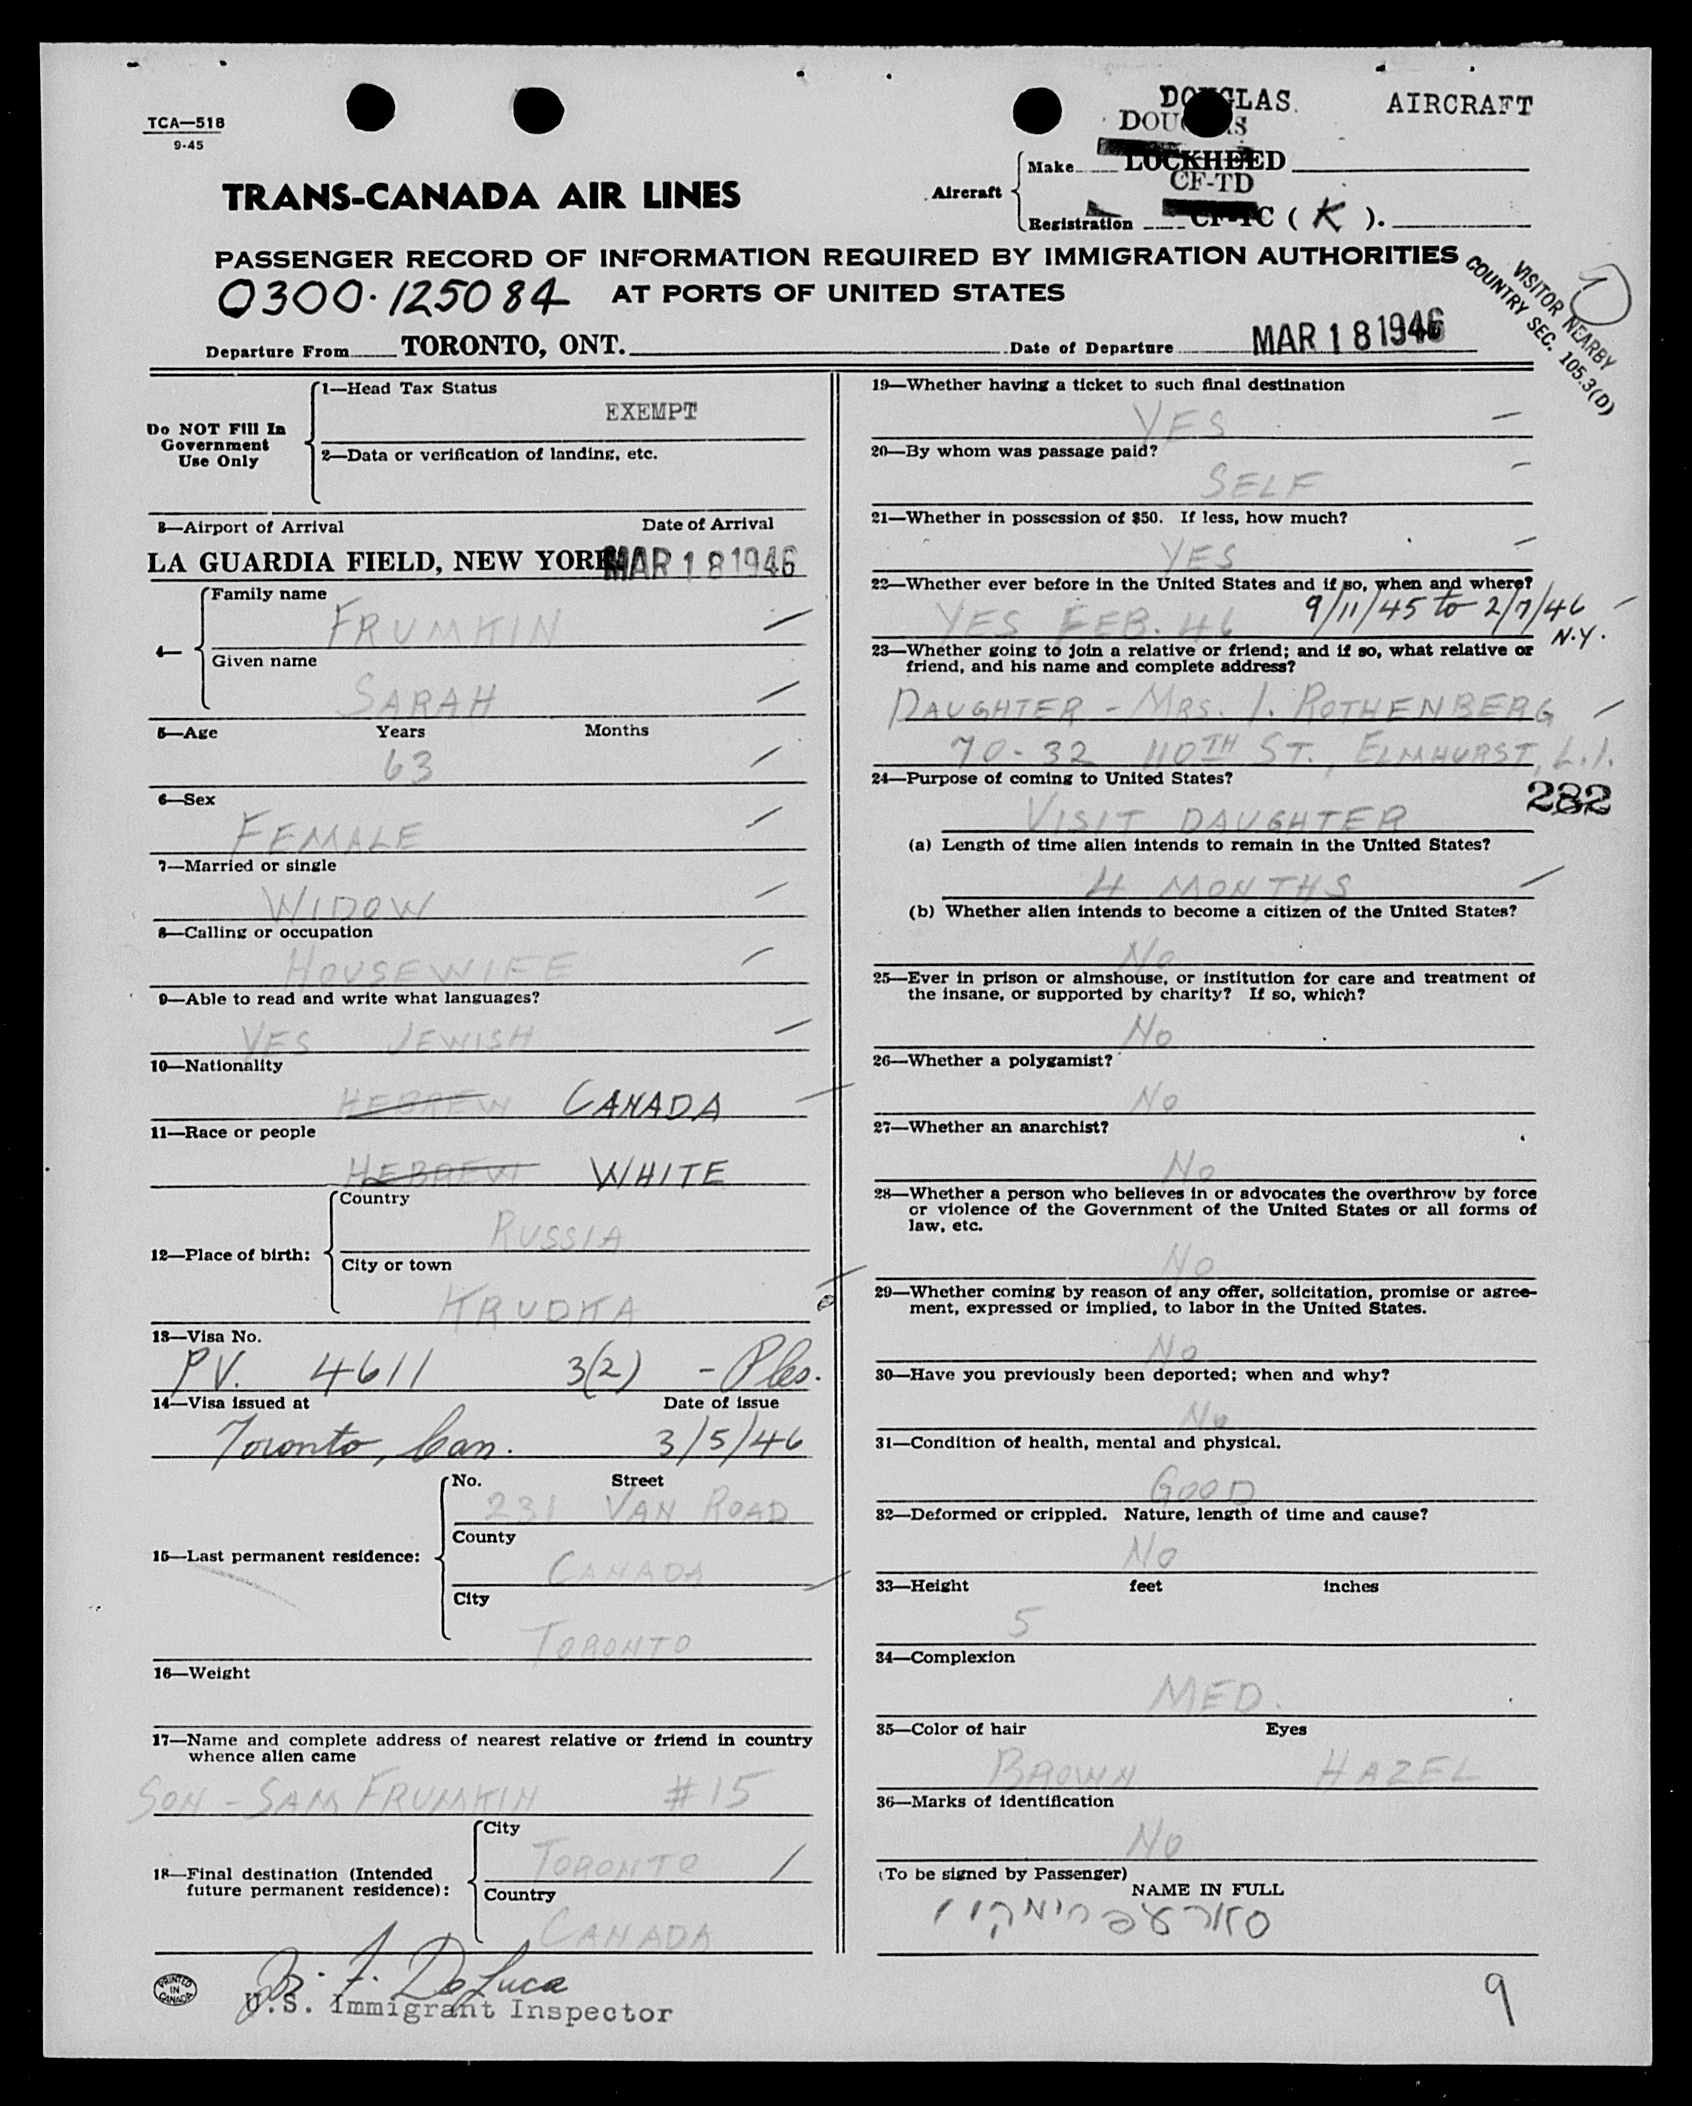 TCA—518
9-45
DOUGLAS AIRCRAFT
DOUGLAS
Make LOCKHEED
CF-TD
Aircraft
Registration CF-TC ( K ).
TRANS-CANADA AIR LINES
PASSENGER RECORD OF INFORMATION REQUIRED BY IMMIGRATION AUTHORITIES
0300·125084 AT PORTS OF UNITED STATES
VISITOR NEARBY
COUNTRY SEC. 105.3(D)
Departure From TORONTO, ONT. Date of Departure MAR 18 1946
Do NOT Fill In
Government
Use Only
1—Head Tax Status
EXEMPT
2—Data or verification of landing, etc.
3—Airport of Arrival Date of Arrival
LA GUARDIA FIELD, NEW YORK MAR 18 1946
4—
Family name
FRUMKIN
Given name
SARAH
5—Age Years Months
63
6—Sex
FEMALE
7—Married or single
WIDOW
8—Calling or occupation
HOUSEWIFE
9—Able to read and write what languages?
YES JEWISH
10—Nationality
HEBREW CANADA
11—Race or people
HEBREW WHITE
12—Place of birth:
Country
RUSSIA
City or town
KRUDKA
13—Visa No.
PV. 4611 3(2) -
14—Visa issued at Date of issue
Toronto, Can. 3/5/46
15—Last permanent residence:
No. Street
231 VAN ROAD
County
CANADA
City
TORONTO
16—Weight
17—Name and complete address of nearest relative or friend in country
whence alien came
SON - SAM FRUMKIN #15
18—Final destination (Intended
future permanent residence):
City
TORONTO
Country
CANADA
F. DeLuca
U.S. Immigrant Inspector
PRINTED
IN
CANADA
19—Whether having a ticket to such final destination
YES
20—By whom was passage paid?
SELF
21—Whether in possession of $50. If less, how much?
YES
22—Whether ever before in the United States and if so, when and where?
YES FEB. 46 9/11/45 to 2/7/46
N.Y.
23—Whether going to join a relative or friend; and if so, what relative or
friend, and his name and complete address?
DAUGHTER - MRS. I. ROTHENBERG
70-32 110TH ST., ELMHURST, L.I.
24—Purpose of coming to United States?
282
VISIT DAUGHTER
(a) Length of time alien intends to remain in the United States?
4 MONTHS
(b) Whether alien intends to become a citizen of the United States?
NO
25—Ever in prison or almshouse, or institution for care and treatment of
the insane, or supported by charity? If so, which?
NO
26—Whether a polygamist?
NO
27—Whether an anarchist?
NO
28—Whether a person who believes in or advocates the overthrow by force
or violence of the Government of the United States or all forms of
law, etc.
NO
29—Whether coming by reason of any offer, solicitation, promise or agree-
ment, expressed or implied, to labor in the United States.
NO
30—Have you previously been deported; when and why?
NO
31—Condition of health, mental and physical.
GOOD
32—Deformed or crippled. Nature, length of time and cause?
NO
33—Height feet inches
5
34—Complexion
MED.
35—Color of hair Eyes
BROWN HAZEL
36—Marks of identification
NO
(To be signed by Passenger)
NAME IN FULL
9